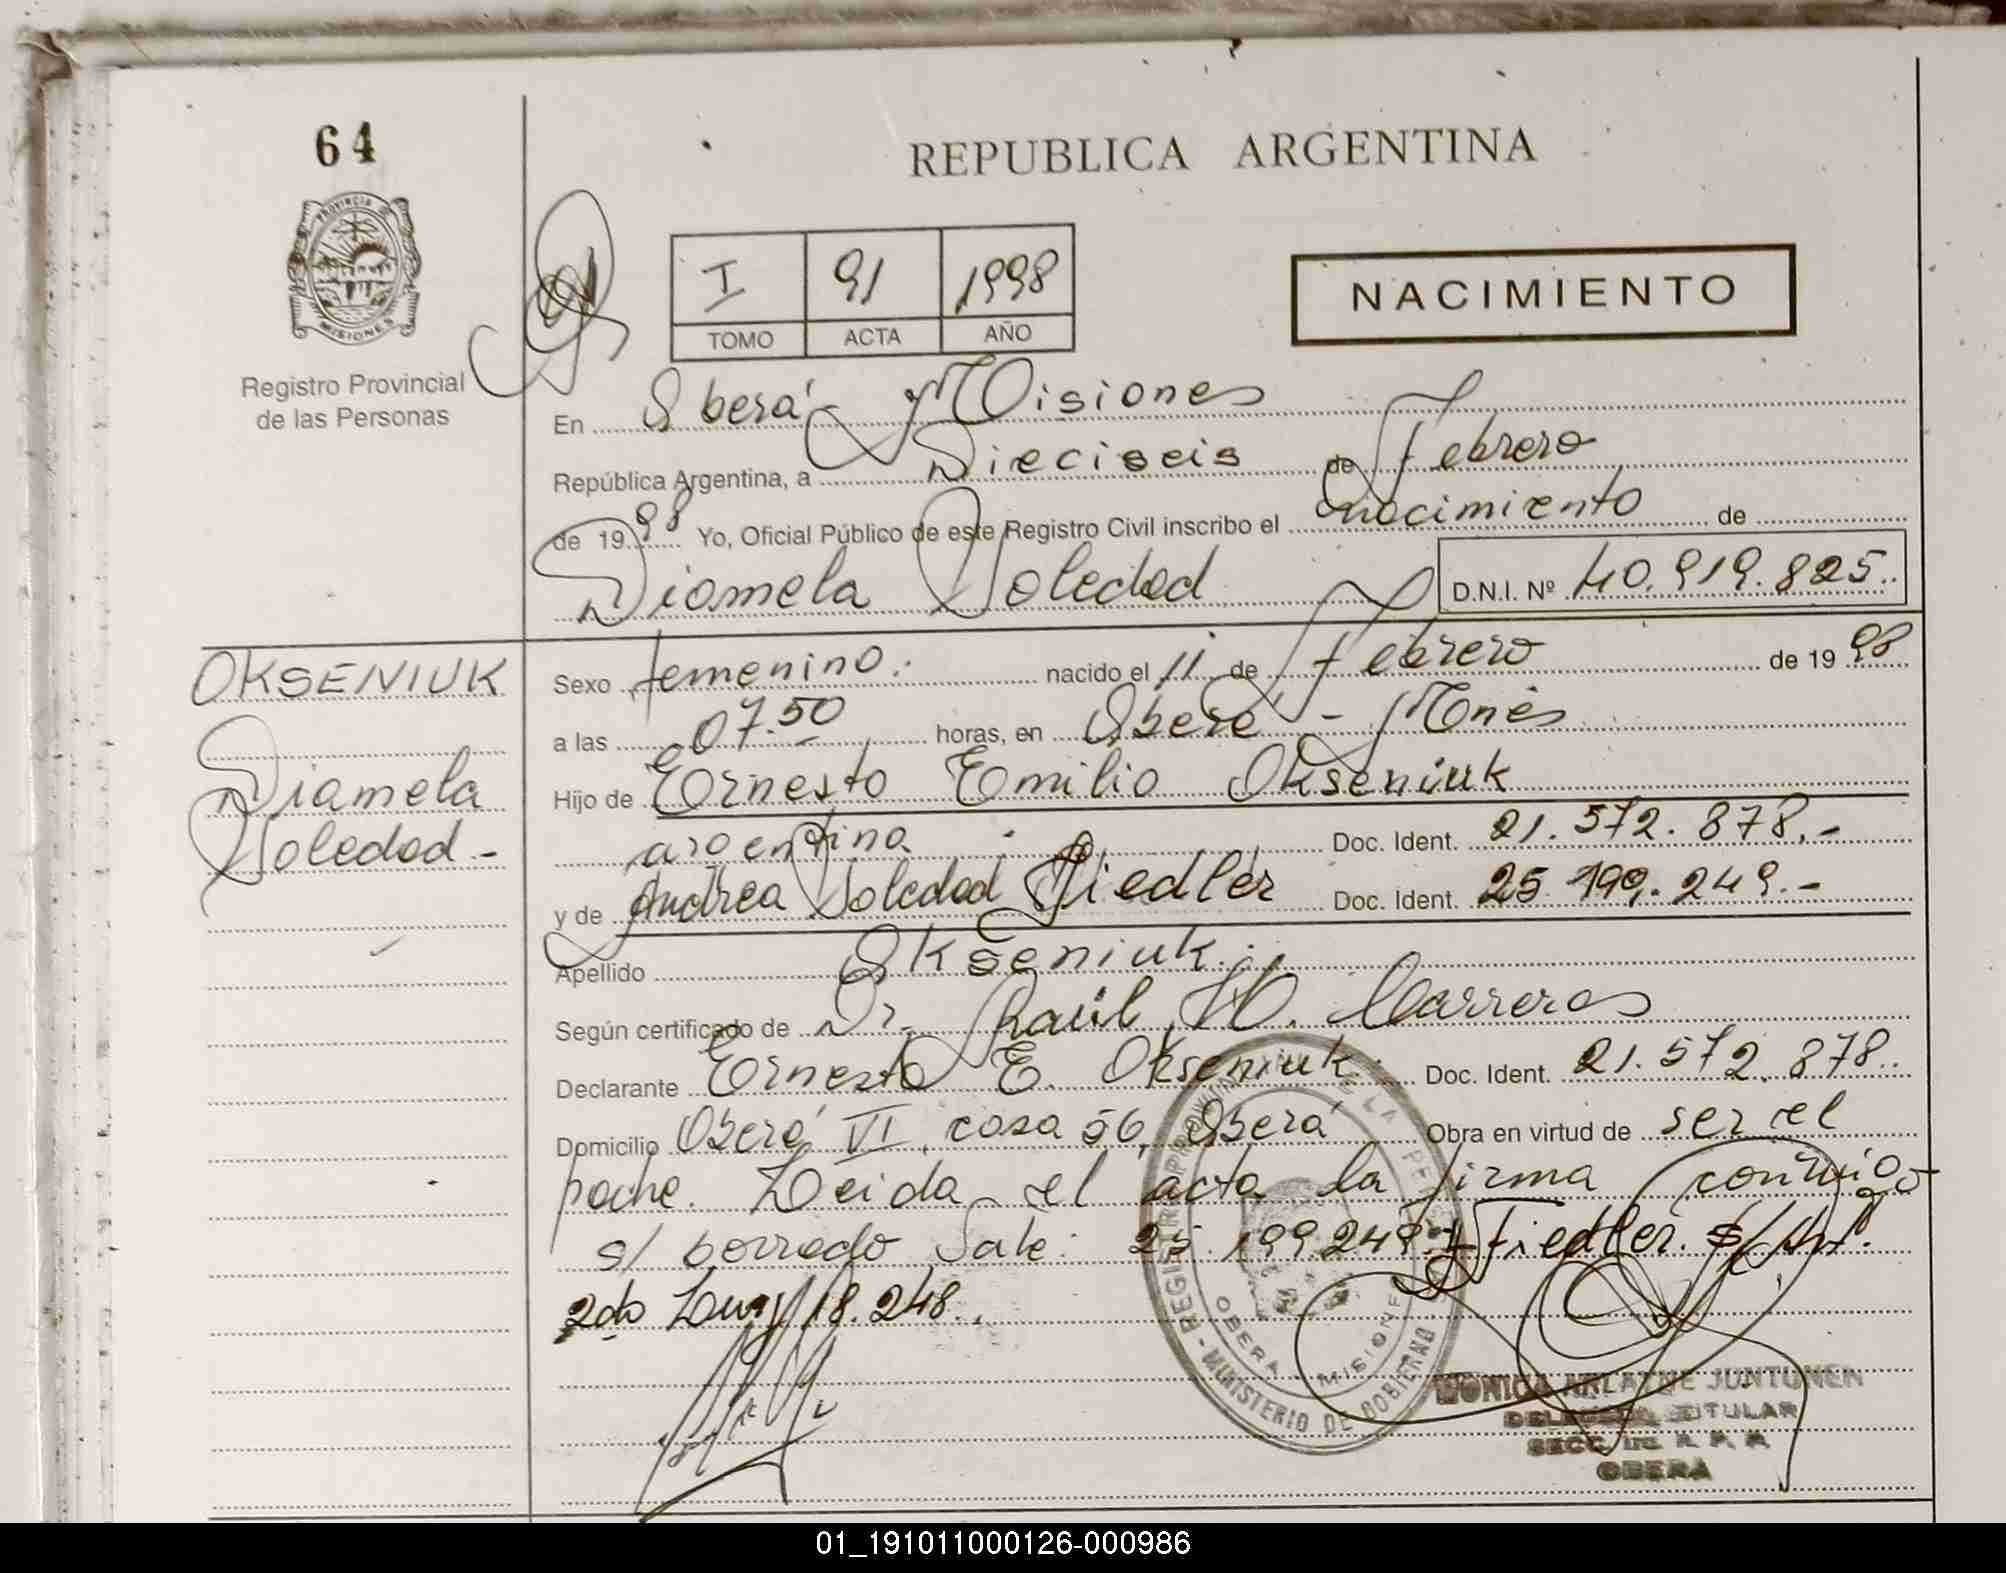 64
PROVINCIA DE
MISIONES
Registro Provincial
de las Personas
REPUBLICA ARGENTINA
I 91 1998
TOMO ACTA AÑO
NACIMIENTO
En Oberá - Misiones
República Argentina, a Dieciseis de Febrero
de 1998 Yo, Oficial Público de este Registro Civil inscribo el nacimiento de
Diamela Soledad D.N.I. Nº 40.919.825.
OKSENIUK
Diamela
Soledad -
Sexo femenino. nacido el 11 de Febrero de 1998
a las 07.50 horas, en Oberá - Mnes
Hijo de Ernesto Emilio Okseniuk
argentino Doc. Ident. 21.572.878.-
y de Andrea Soledad Fiedler Doc. Ident. 25.199.249.-
Apellido Okseniuk.
Según certificado de Dr. Raúl H. Carreras
Declarante Ernesto E. Okseniuk. Doc. Ident. 21.572.878.
Domicilio Oberá VI, casa 56, Oberá Obra en virtud de ser el
padre. Leida el acta la firma conmigo
s/ borrado Vale: 25.199.249 y Fiedler. s/ Art.
2do Ley 18.248.
REGISTRO PROVINCIAL DE LAS PERSONAS - MINISTERIO DE GOBIERNO
OBERA MISIONES
MONICA ARLAYNE JUNTUNEN
DELEGADA TITULAR
SECC. 1ra. R. P. P.
OBERA
01_191011000126-000986